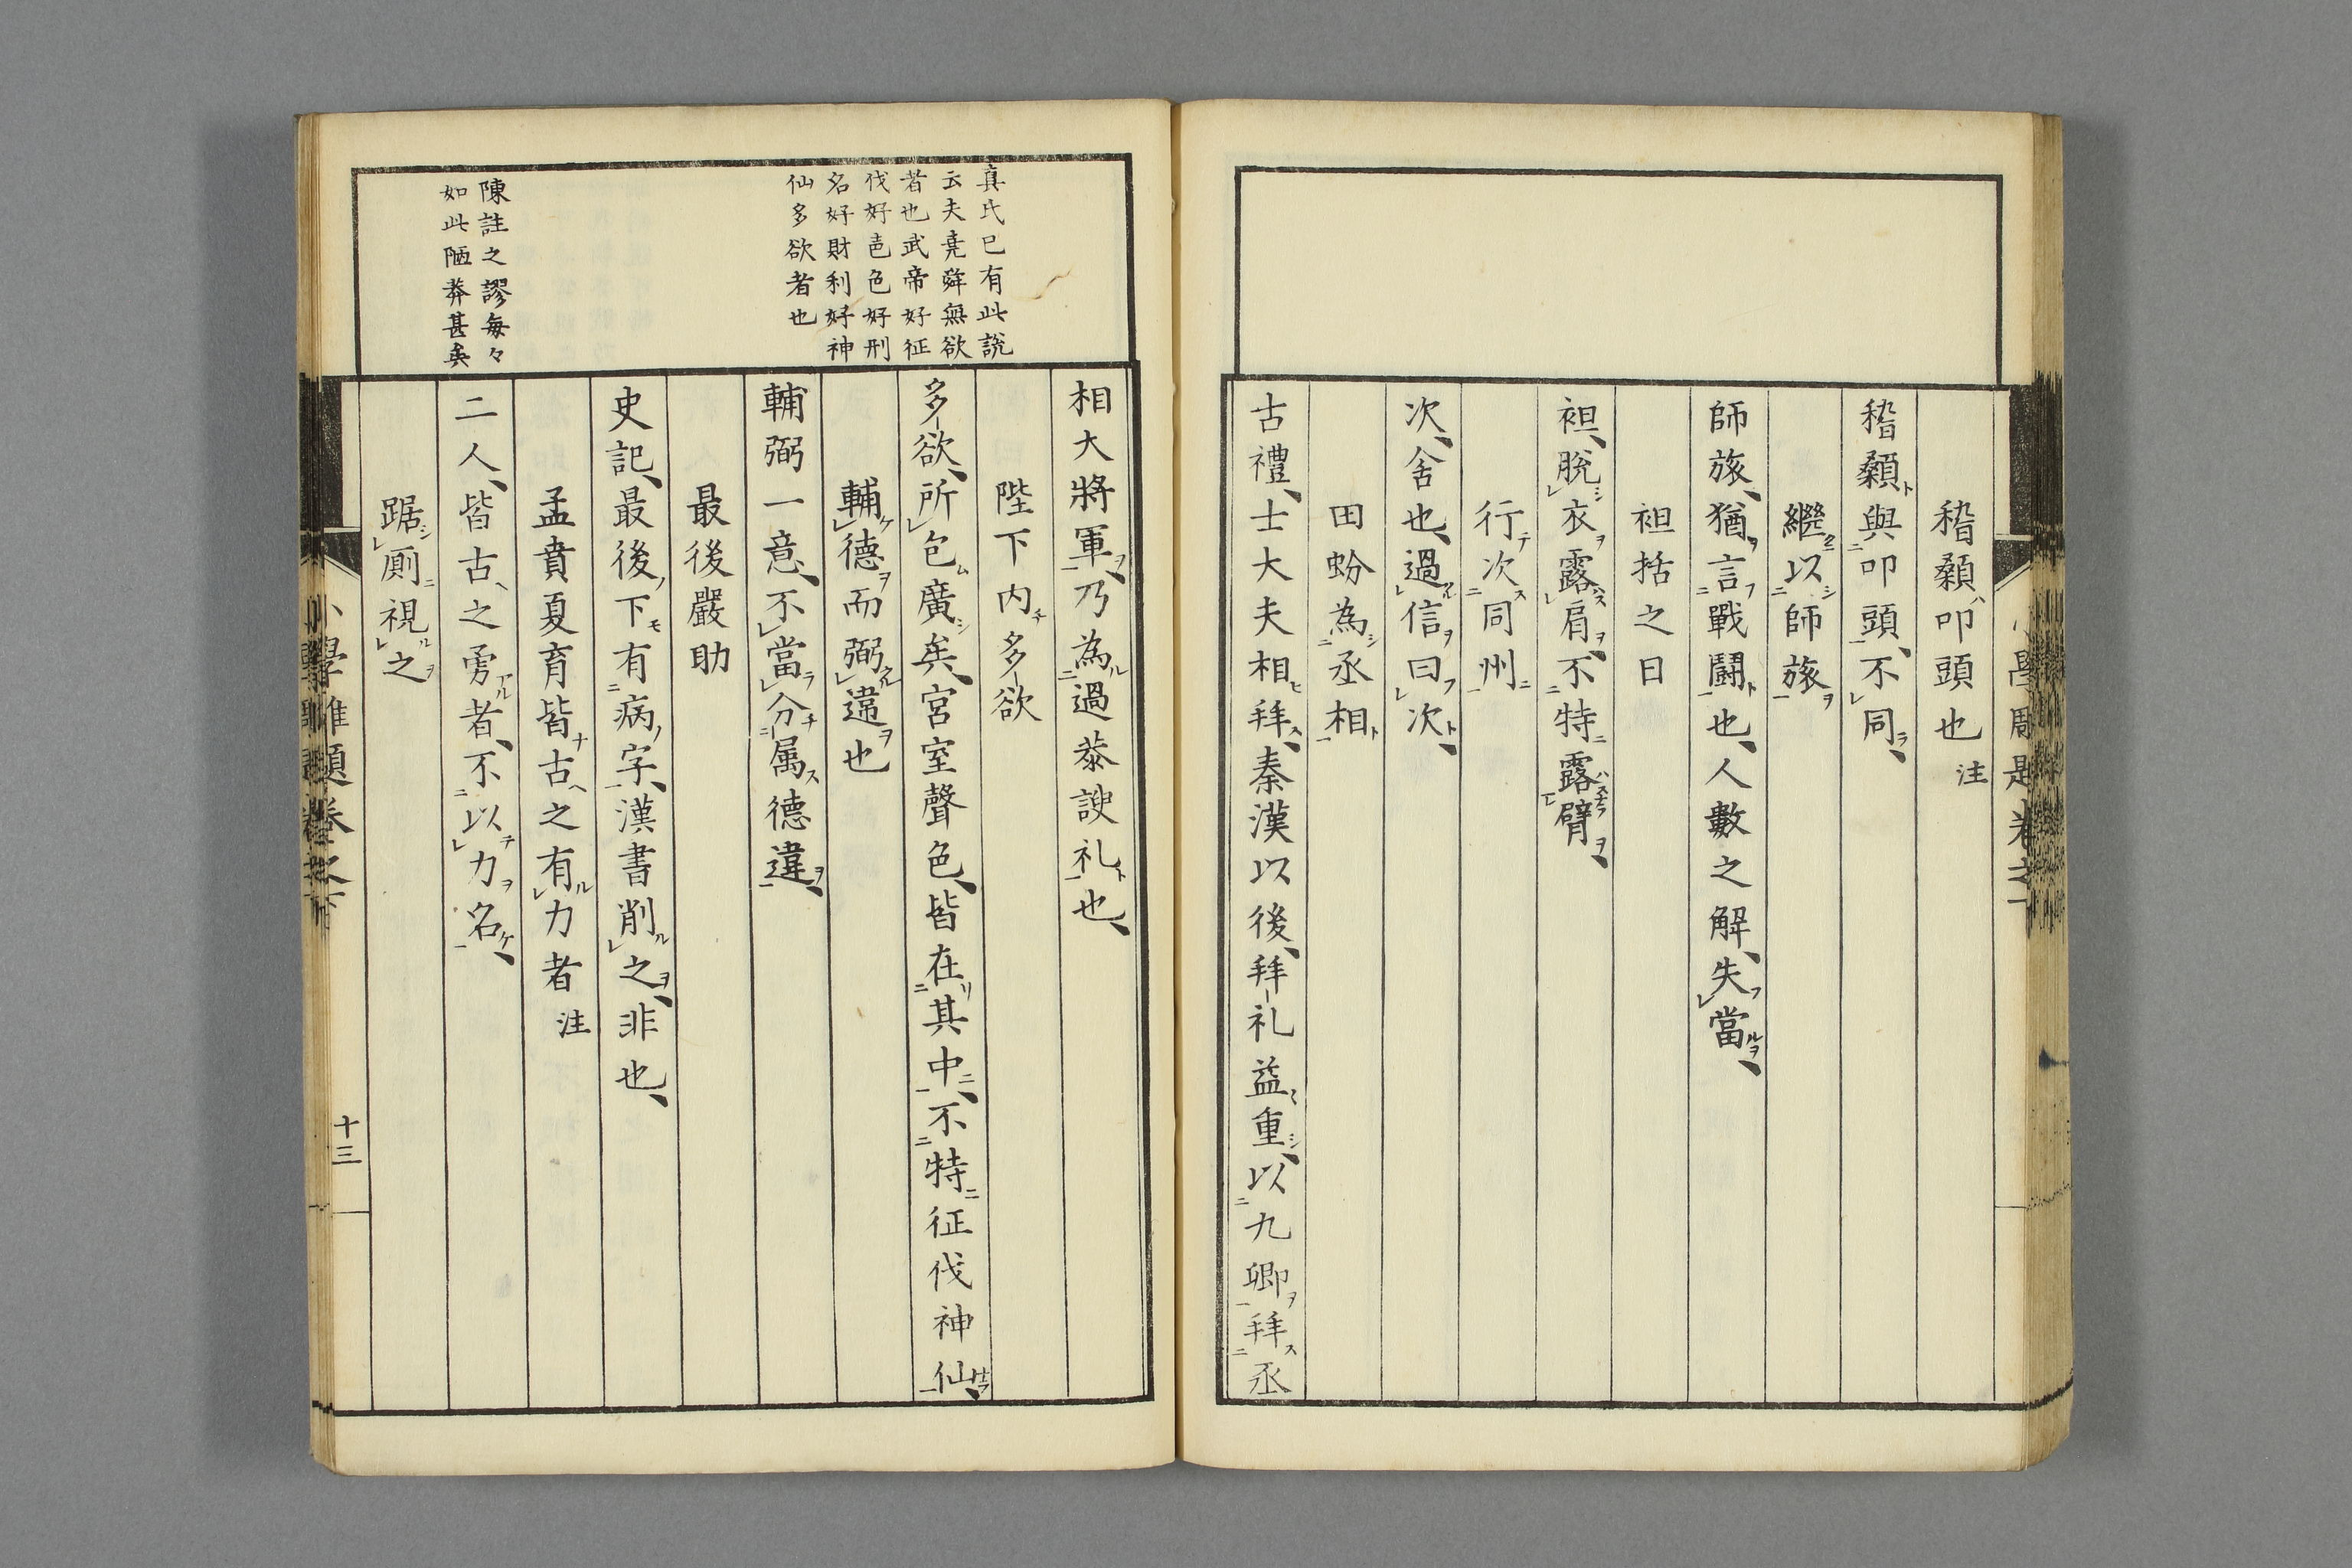 稽顙叩頭也 注
稽顙與叩頭不同
繼以師旅
師旅猶言戰鬪也人數之解失當
袒括之日
袒脫衣露肩不特露臂
行次同州
次舍也過信曰次
田蚡為丞相
古禮士大夫相拜秦漢以後拜礼益重以九卿拜丞
相大將軍乃為過恭諛礼也
陛下内多欲
多欲所包廣矣宮室聲色皆在其中不特征伐神仙
輔德而弼違也
輔弼一意不當分属德違
最後嚴助
史記最後下有病字漢書削之非也
孟賁夏育皆古之有力者 注
二人皆古之勇者不以力名
踞厠視之
真氏已有此說
云夫堯舜無欲
者也武帝好征
伐好色好刑
名好財利好神
仙多欲者也
陳註之謬每々
如此陋莽甚矣
十三